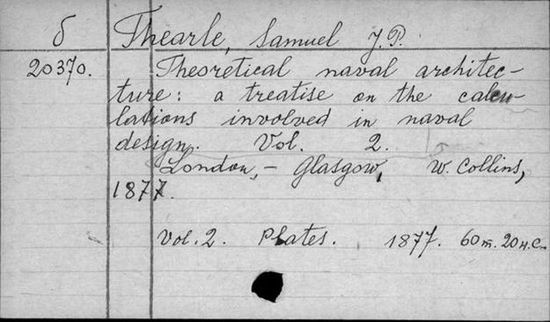 б Thearle, Samuel J.P.
20370. Theoretical naval architec-
ture: a treatise on the calcu-
lations involved in naval
design. Vol. 2.
London, - Glasgow, W. Collins,
1877.
Vol. 2. Plates. 1877. 60 m. 20 н.с.